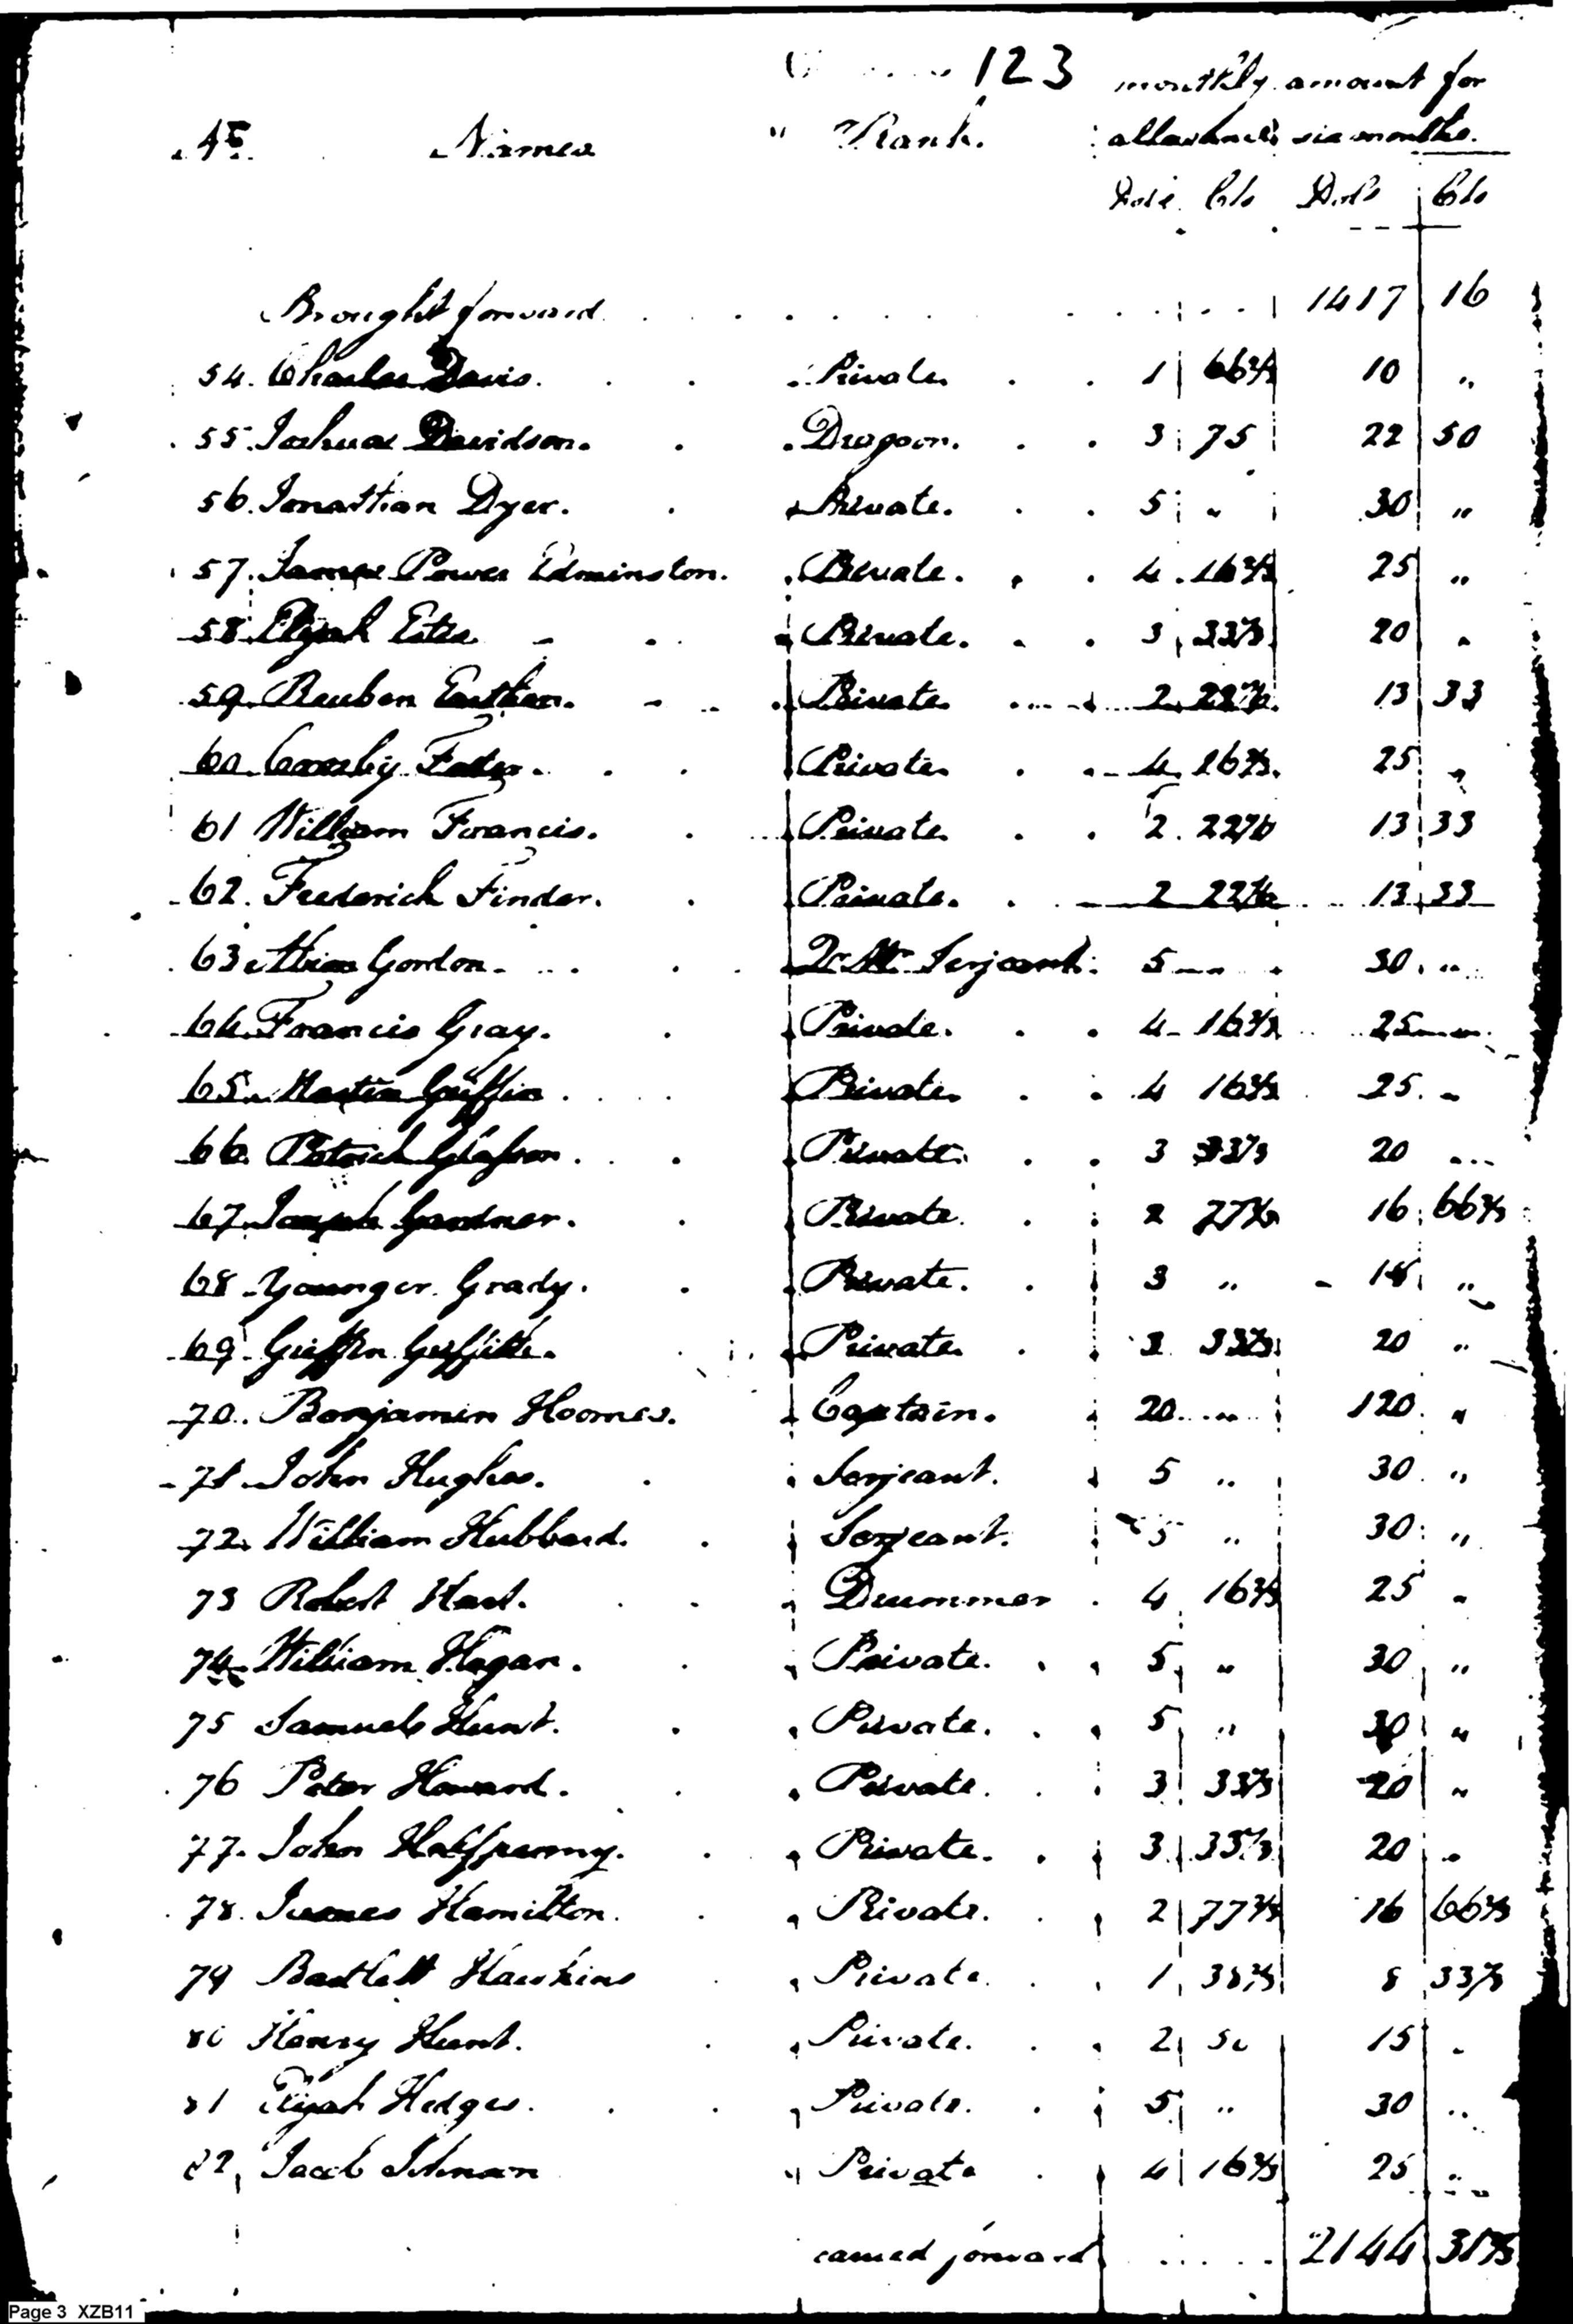 123 monthly amount for
No. Names Rank. allowance six months.
Dols Cts Dols Cts
Brought forward 1417 16
54. Charles Davis. Private 1 66 2/3 10 "
55. Joshua Davidson. Dragoon. 3 75 22 50
56. Jonathan Dyer. Private. 5 " 30 "
57. James Power Edminston. Private. 4 16 2/3 25 "
58. Elijah Estes Private. 3 33 1/3 20 "
59. Reuben Private 2 22 13 33
60. Private 4 16 2/3 25 "
61 William Francis. Private 2. 22 13 33
62. Frederick Finder. Private. 2 22 13 33
63 Gordon. Qr. Mr. Serjeant. 5 " 30 "
64. Francis Gray. Private. 4 16 2/3 25 "
65. Martin Griffin. Private. 4 16 2/3 25 "
66. Patrick Private 3 33 1/3 20 "
67. Joseph Gardner. Private. 2 77 16 66 2/3
68. Younger Grady. Private. 3 " 18 "
69. Griffin Griffith. Private. 3 33 1/3 20 "
70. Benjamin Hoomes. Captain. 20 " 120 "
71. John Hughes. Serjeant. 5 " 30 "
72. William Hubbard. Serjeant. 5 " 30 "
73 Robert Hart. Drummer 4 16 2/3 25 "
74. William Hogan. Private. 5 " 30 "
75 Samuel Hunt. Private. 5 " 30 "
76 Peter Howard. Private. 3 33 1/3 20 "
77. John Halfpenny. Private. 3 33 1/3 20 "
78. James Hamilton. Private. 2 77 16 66 2/3
79 Bartlett Hawkins Private. 1 38 8 33 1/3
80 Henry Hunt. Private. 2 50 15 "
81 Elijah Hedges. Private. 5 " 30 "
82, Jacob Private 4 16 2/3 25 "
carried forward 2144 31
Page 3 XZB11